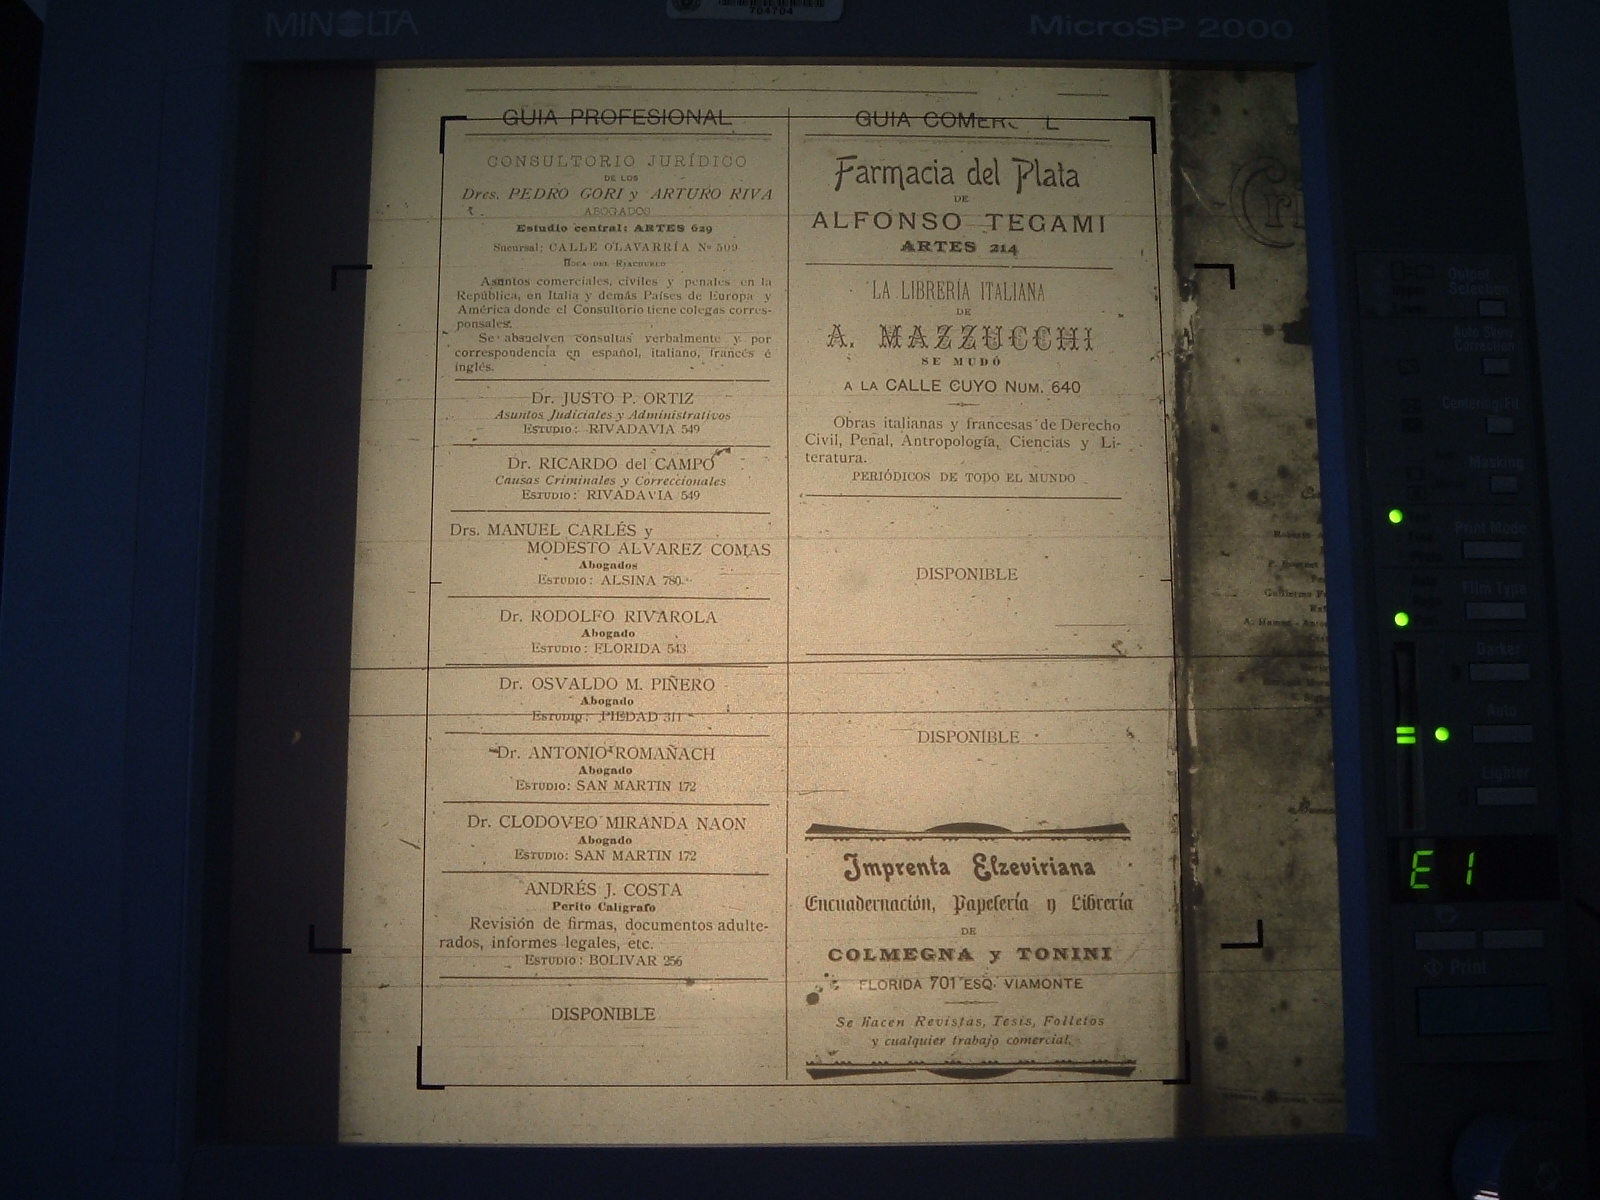 MINOLTA
704704
MicroSP 2000
GUIA PROFESIONAL
CONSULTORIO JURÍDICO
DE LOS
Dres. PEDRO GORI y ARTURO RIVA
ABOGADOS
Estudio central: ARTES 629
Sucursal: CALLE OLAVARRÍA Nº 509
BOCA DEL RIACHUELO
Asuntos comerciales, civiles y penales en la
República, en Italia y demás Países de Europa y
América donde el Consultorio tiene colegas corres-
ponsales.
Se absuelven consultas verbalmente y por
correspondencia en español, italiano, francés é
inglés.
Dr. JUSTO P. ORTIZ
Asuntos Judiciales y Administrativos
ESTUDIO: RIVADAVIA 549
Dr. RICARDO del CAMPO
Causas Criminales y Correccionales
ESTUDIO: RIVADAVIA 549
Drs. MANUEL CARLÉS y
MODESTO ALVAREZ COMAS
Abogados
ESTUDIO: ALSINA 780
Dr. RODOLFO RIVAROLA
Abogado
ESTUDIO: FLORIDA 543
Dr. OSVALDO M. PIÑERO
Abogado
ESTUDIO: PIEDAD 311
Dr. ANTONIO ROMAÑACH
Abogado
ESTUDIO: SAN MARTIN 172
Dr. CLODOVEO MIRANDA NAON
Abogado
ESTUDIO: SAN MARTIN 172
ANDRÉS J. COSTA
Perito Calígrafo
Revisión de firmas, documentos adulte-
rados, informes legales, etc.
ESTUDIO: BOLIVAR 256
DISPONIBLE
GUIA COMER L
Farmacia del Plata
DE
ALFONSO TEGAMI
ARTES 214
LA LIBRERÍA ITALIANA
DE
A. MAZZUCCHI
SE MUDÓ
A LA CALLE CUYO NUM. 640
Obras italianas y francesas de Derecho
Civil, Penal, Antropología, Ciencias y Li-
teratura.
PERIÓDICOS DE TODO EL MUNDO
DISPONIBLE
DISPONIBLE
Imprenta Elzeviriana
Encuadernación, Papelería y Librería
DE
COLMEGNA y TONINI
FLORIDA 701 ESQ. VIAMONTE
Se hacen Revistas, Tesis, Folletos
y cualquier trabajo comercial.
Cri
Output
Selection
Auto Skew
Correction
Centering/Fit
Masking
Print Mode
Film Type
Darker
Auto
Lighter
E 1
Print